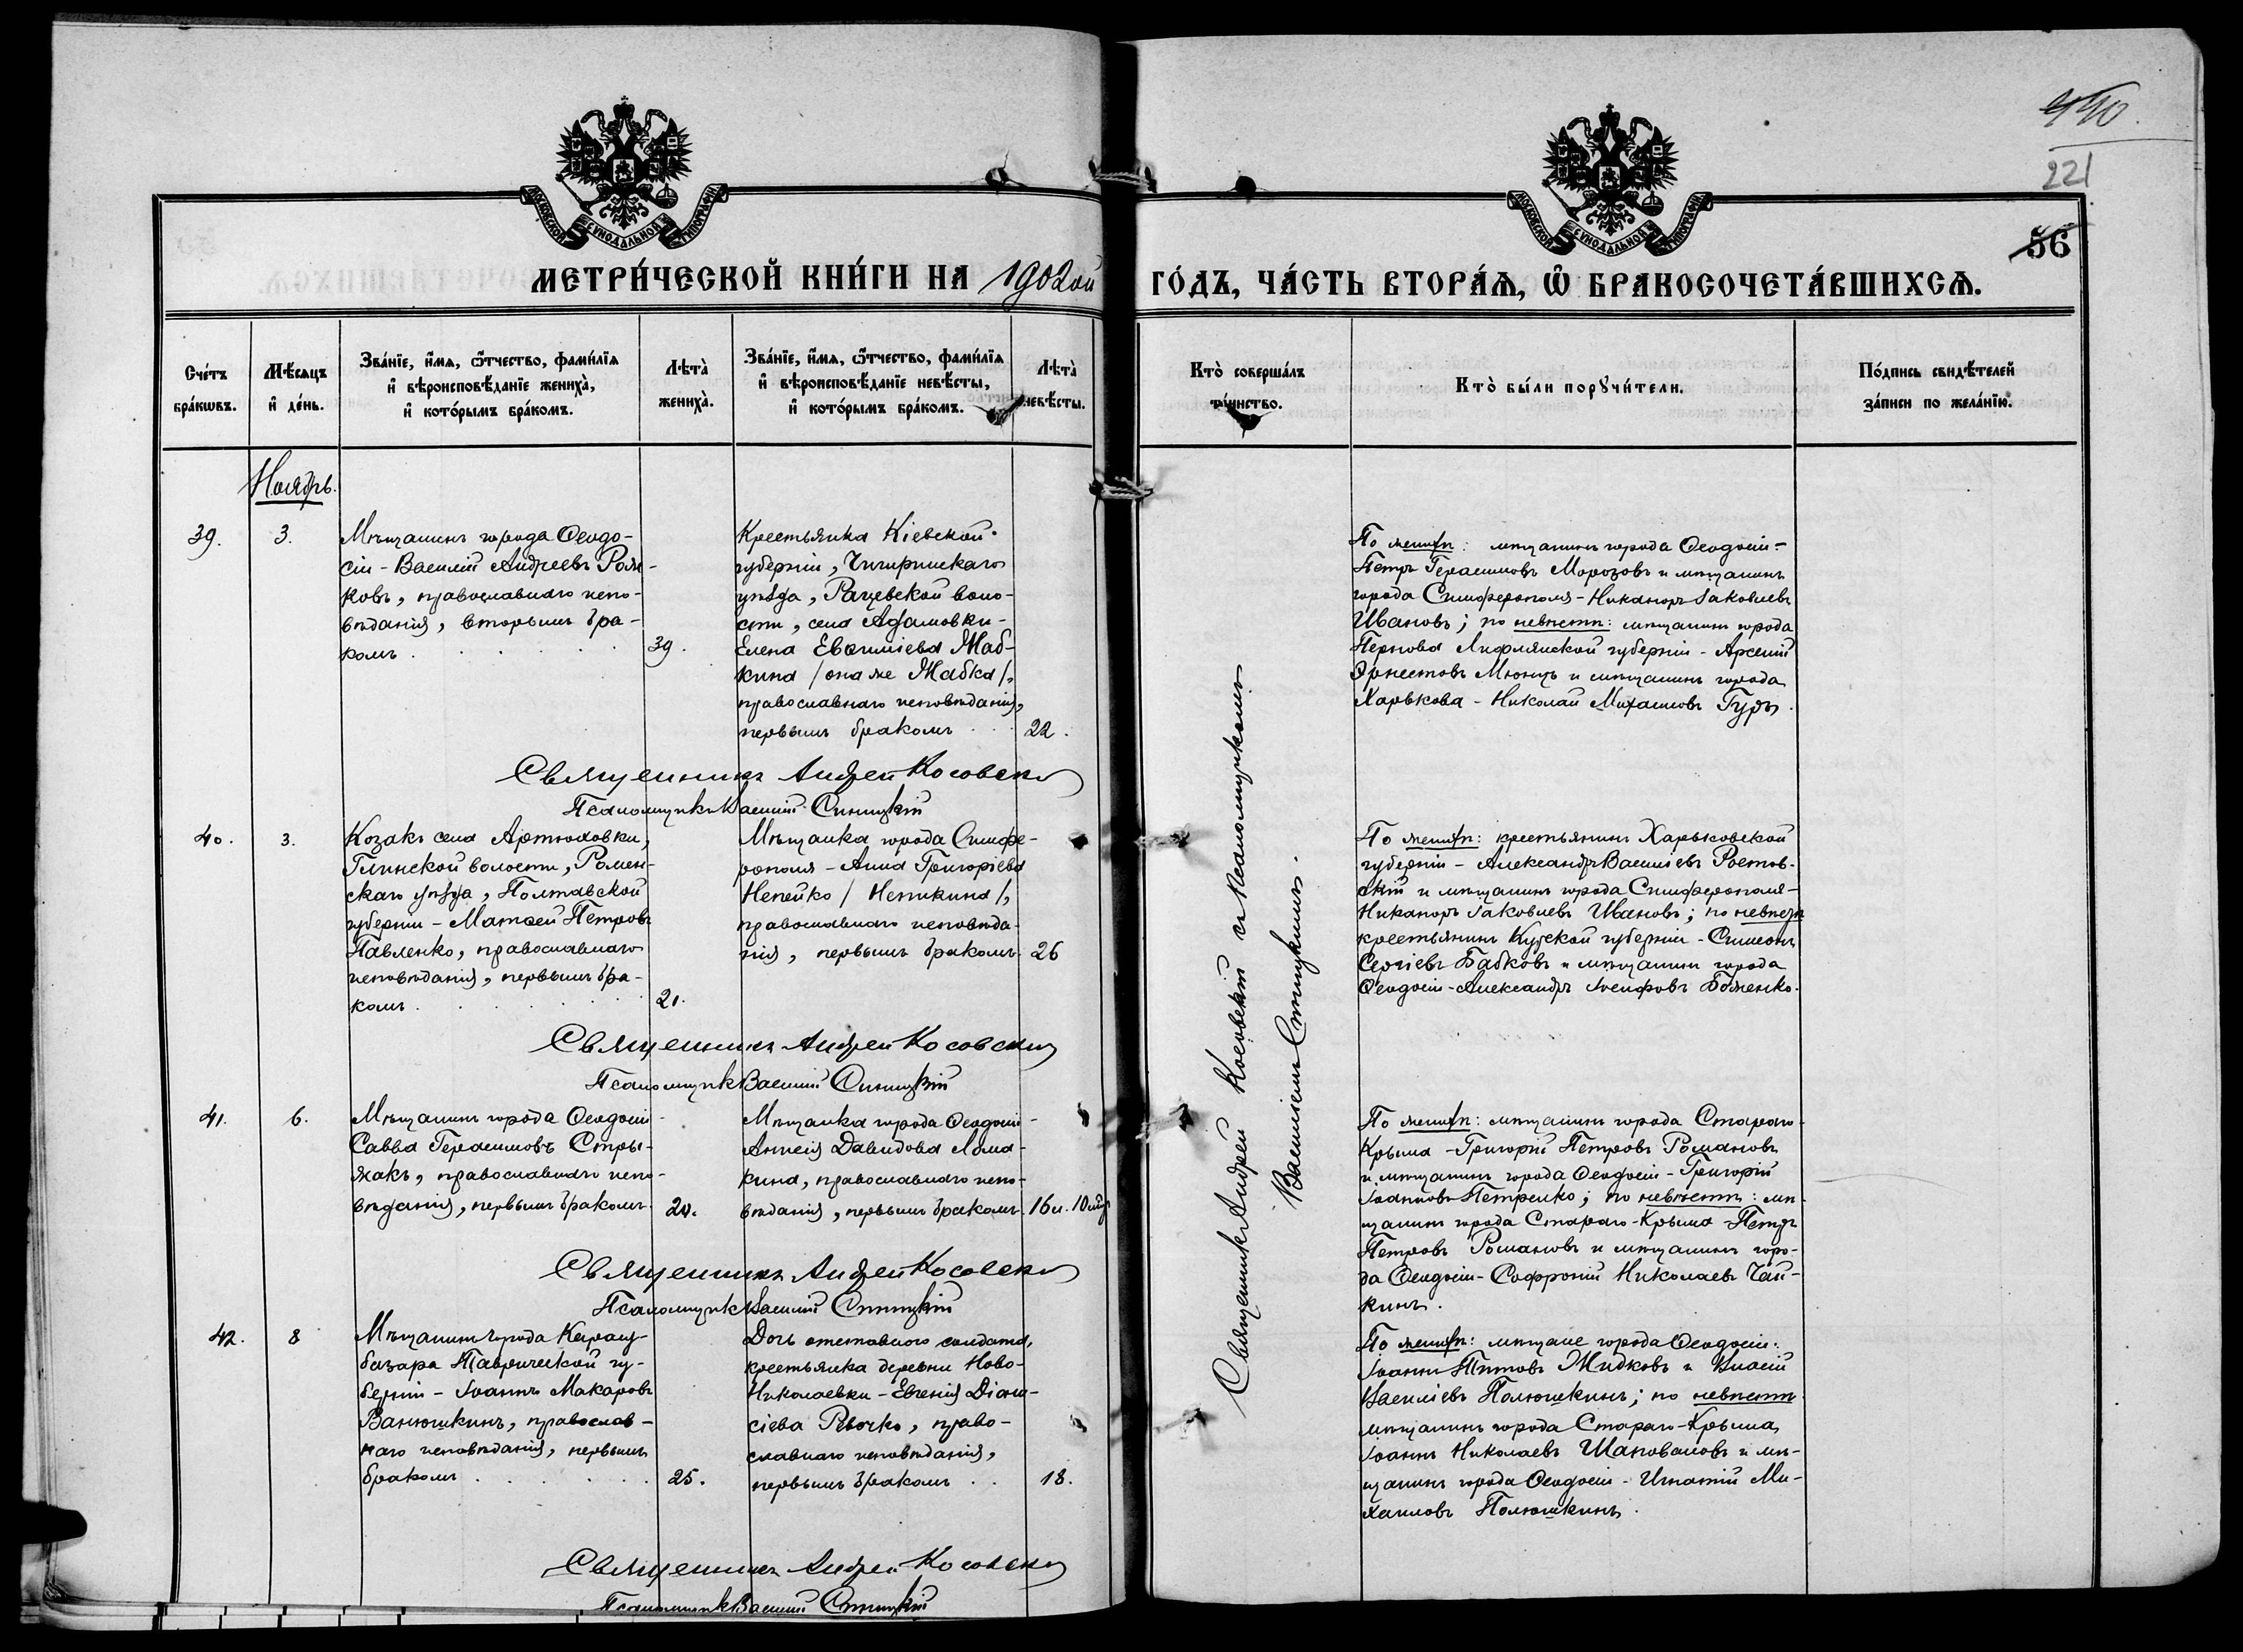 440.
221
56
МОСКОВСКОЙ СУНОДАЛЬНОЙ ТИПОГРАФІИ
МОСКОВСКОЙ СУНОДАЛЬНОЙ ТИПОГРАФІИ
МЕТРИ́ЧЕСКОЙ КНИ́ГИ НА 1902ой ГО́ДЪ, ЧА́СТЬ ВТОРА́Ѧ, Ѡ҆ БРАКОСОЧЕТА́ВШИХСѦ.
Сче́тъ
бра́кѡвъ.
Мѣ́сѧцъ
и҆ де́нь.
Зва́нїе, и҆́мѧ, ѻ҆́тчество, фами́лїѧ
и҆ вѣроисповѣ́данїе жениха̀,
и҆ кото́рымъ бра́комъ.
Лѣта̀
жениха̀.
Зва́нїе, и҆́мѧ, ѻ҆́тчество, фами́лїѧ
и҆ вѣроисповѣ́данїе невѣ́сты,
и҆ кото́рымъ бра́комъ.
Лѣта̀
невѣ́сты.
Кто̀ соверша́лъ
та́инство.
Кто̀ бы́ли порꙋчи́тели.
По́дпись свидѣ́телей
за́писи по жела́нїю.
Ноябрь.
39.
3.
Мѣщанинъ города Ѳеодо-
сіи - Василій Андреевъ Рож-
ковъ, православнаго испо-
вѣданія, вторымъ бра-
комъ
39.
Крестьянка Кіевской
губерніи, Чигиринскаго
уѣзда, Рацевской воло-
сти, села Адамовки -
Елена Евѳиміева Жаб-
кина /она же Жабка/,
православнаго исповѣданія,
первымъ бракомъ
22.
По женихѣ: мѣщанинъ города Ѳеодосіи -
Петръ Герасимовъ Морозовъ и мѣщанинъ
города Симферополя - Никаноръ Іаковлевъ
Ивановъ; по невѣстѣ: мѣщанинъ города
Пернова Лифляндской губерніи - Арсеній
Эрнестовъ Мюнцъ и мѣщанинъ города
Харькова - Николай Михаиловъ Гуръ.
Священникъ Андрей Косовскій
Псаломщикъ Василій Синицкій
40.
3.
Козакъ села Артюховки,
Глинской волости, Ромен-
скаго уѣзда, Полтавской
губерніи - Матѳей Петровъ
Павленко, православнаго
исповѣданія, первымъ бра-
комъ
21.
Мѣщанка города Симфе-
рополя - Анна Григоріева
Непейко / Непикина /,
православнаго исповѣда-
нія, первымъ бракомъ
26
По женихѣ: крестьянинъ Харьковской
губерніи - Александръ Василіевъ Ростов-
скій и мѣщанинъ города Симферополя -
Никаноръ Іаковлевъ Ивановъ; по невѣстѣ
крестьянинъ Курской губерніи - Симеонъ
Сергіевъ Бабковъ и мѣщанинъ города
Ѳеодосіи - Александръ Іосифовъ Боженко.
Священникъ Андрей Косовскій
Псаломщикъ Василій Синицкій
41.
6.
Мѣщанинъ города Ѳеодосіи -
Савва Герасимовъ Стры-
жакъ, православнаго испо-
вѣданія, первымъ бракомъ
24.
Мѣщанка города Ѳеодосіи -
Аннея Давидова Лома-
кина, православнаго испо-
вѣданія, первымъ бракомъ
16 и 10 мѣс
По женихѣ: мѣщанинъ города Стараго-
Крыма - Григорій Петровъ Романовъ
и мѣщанинъ города Ѳеодосіи - Григорій
Іоанновъ Петренко; по невѣстѣ: мѣ-
щанинъ города Стараго-Крыма - Петръ
Петровъ Романовъ и мѣщанинъ горо-
да Ѳеодосіи - Софроній Николаевъ Чай-
кинъ.
Священникъ Андрей Косовскій
Псаломщикъ Василій Синицкій
42.
8
Мѣщанинъ города Карасу-
базара Таврической гу-
берніи - Іоаннъ Макаровъ
Ванюшкинъ, православ-
наго исповѣданія, первымъ
бракомъ
25.
Дочь отставного солдата,
крестьянка деревни Ново-
Николаевки - Евгенія Діони-
сіева Ревочко, право-
славнаго исповѣданія,
первымъ бракомъ
18.
По женихѣ: мѣщане города Ѳеодосіи:
Іоаннъ Титовъ Жидковъ и Власій
Василіевъ Полюшкинъ; по невѣстѣ
мѣщанинъ города Стараго-Крыма
Іоаннъ Николаевъ Шаповаловъ и мѣ-
щанинъ города Ѳеодосіи - Игнатій Ми-
хаиловъ Полюшкинъ.
Священникъ Андрей Косовскій
Псаломщикъ Василій Синицкій
Священникъ Андрей Косовскій съ псаломщикомъ
Василіемъ Синицкимъ.